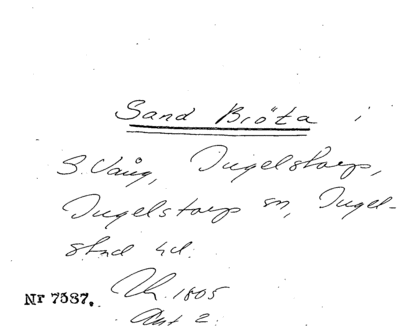 Sand Bröta i
S. Vång, Ingelstorp,
Ingelstorps sn, Ingel-
stad hd.
Nr 7587. Th. 1805
Akt 2.